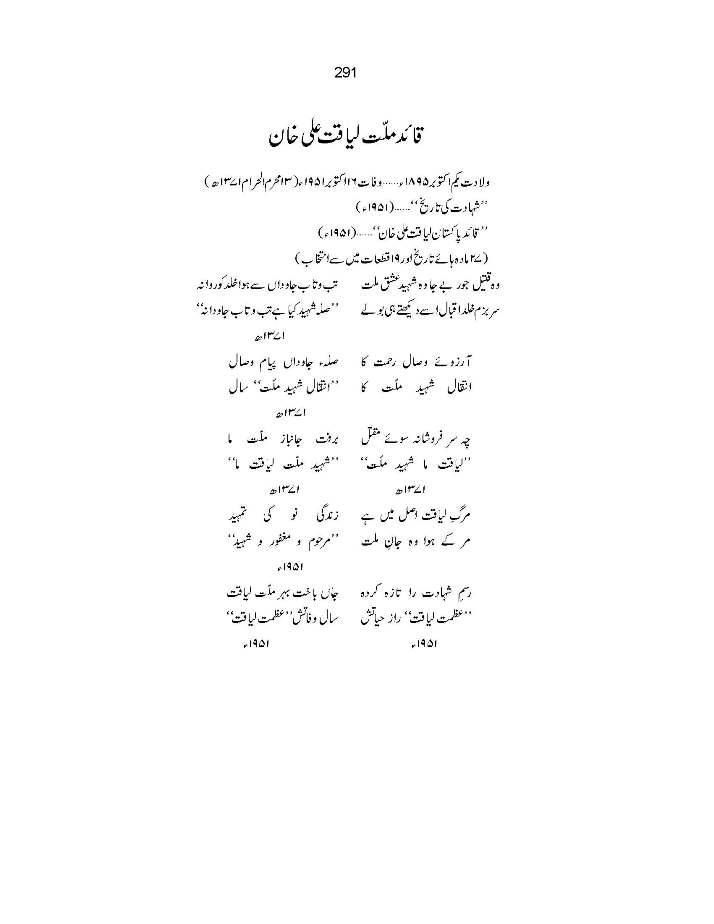 291
قائد ملّت لیاقت علی خان
ولادت یکم اکتوبر ۱۸۹۵ء......وفات ۱۶ اکتوبر ۱۹۵۱ء (۱۳ محرم الحرام ۱۳۷۱ھ)
’’شہادت کی تاریخ‘‘......(۱۹۵۱ء)
’’قائد پاکستان لیاقت علی خان‘‘......(۱۹۵۱ء)
(۲۷ مادہ ہائے تاریخ اور ۱۹ قطعات میں سے انتخاب)
وہ قتیل جور بے جا وہ شہید عشق ملت تب و تاب جاوداں سے ہوا خلد کو روانہ
سر بزم خلد اقبال اسے دیکھتے ہی بولے ’’صلہ شہید کیا ہے تب و تاب جاودانہ‘‘
۱۳۷۱ھ
آرزوئے وصال رحمت کا صلہء جاوداں پیام وصال
انتقال شہید ملّت کا ’’انتقال شہید ملّت‘‘ سال
۱۳۷۱ھ
چہ سر فروشانہ سوئے مقتل برفت جانباز ملّت ما
’’لیاقت ما شہید ملّت‘‘ ’’شہید ملّت لیاقت ما‘‘
۱۳۷۱ھ ۱۳۷۱ھ
مرگِ لیاقت اصل میں ہے زندگی نو کی تمہید
مر کے ہوا وہ جانِ ملت ’’مرحوم و مغفور و شہید‘‘
۱۹۵۱ء
رسمِ شہادت را تازہ کردہ جاں باخت بہر ملّت لیاقت
’’عظمت لیاقت‘‘ راز حیاتش سال وفاتش ’’عظمت لیاقت‘‘
۱۹۵۱ء ۱۹۵۱ء